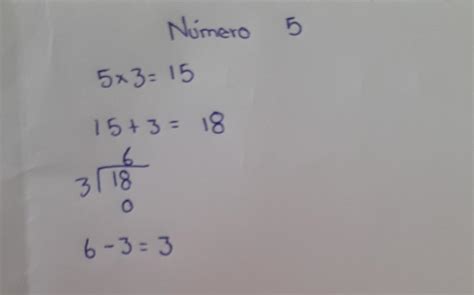 Número 5
5x3=15
15+3= 18
6
3√18
0
6-3=3